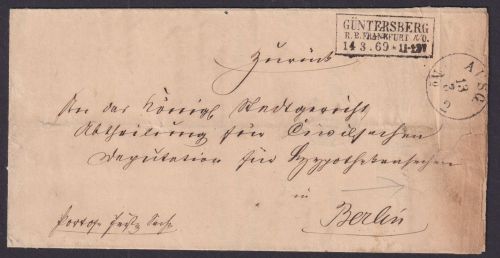 GÜNTERSBERG
R. B. FRANKFURT A/O.
14 3. 69 * 11-12V
Zurück
AUSG
13
3
An das Königl Stadtgericht
Abtheilung für Civilsachen
Deputation für Hypothekensachen
in
Berlin
Portofr Sache